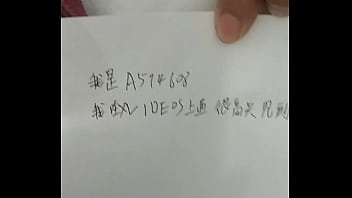 我是A594608
我在XVIDEOS上面 很高兴见到